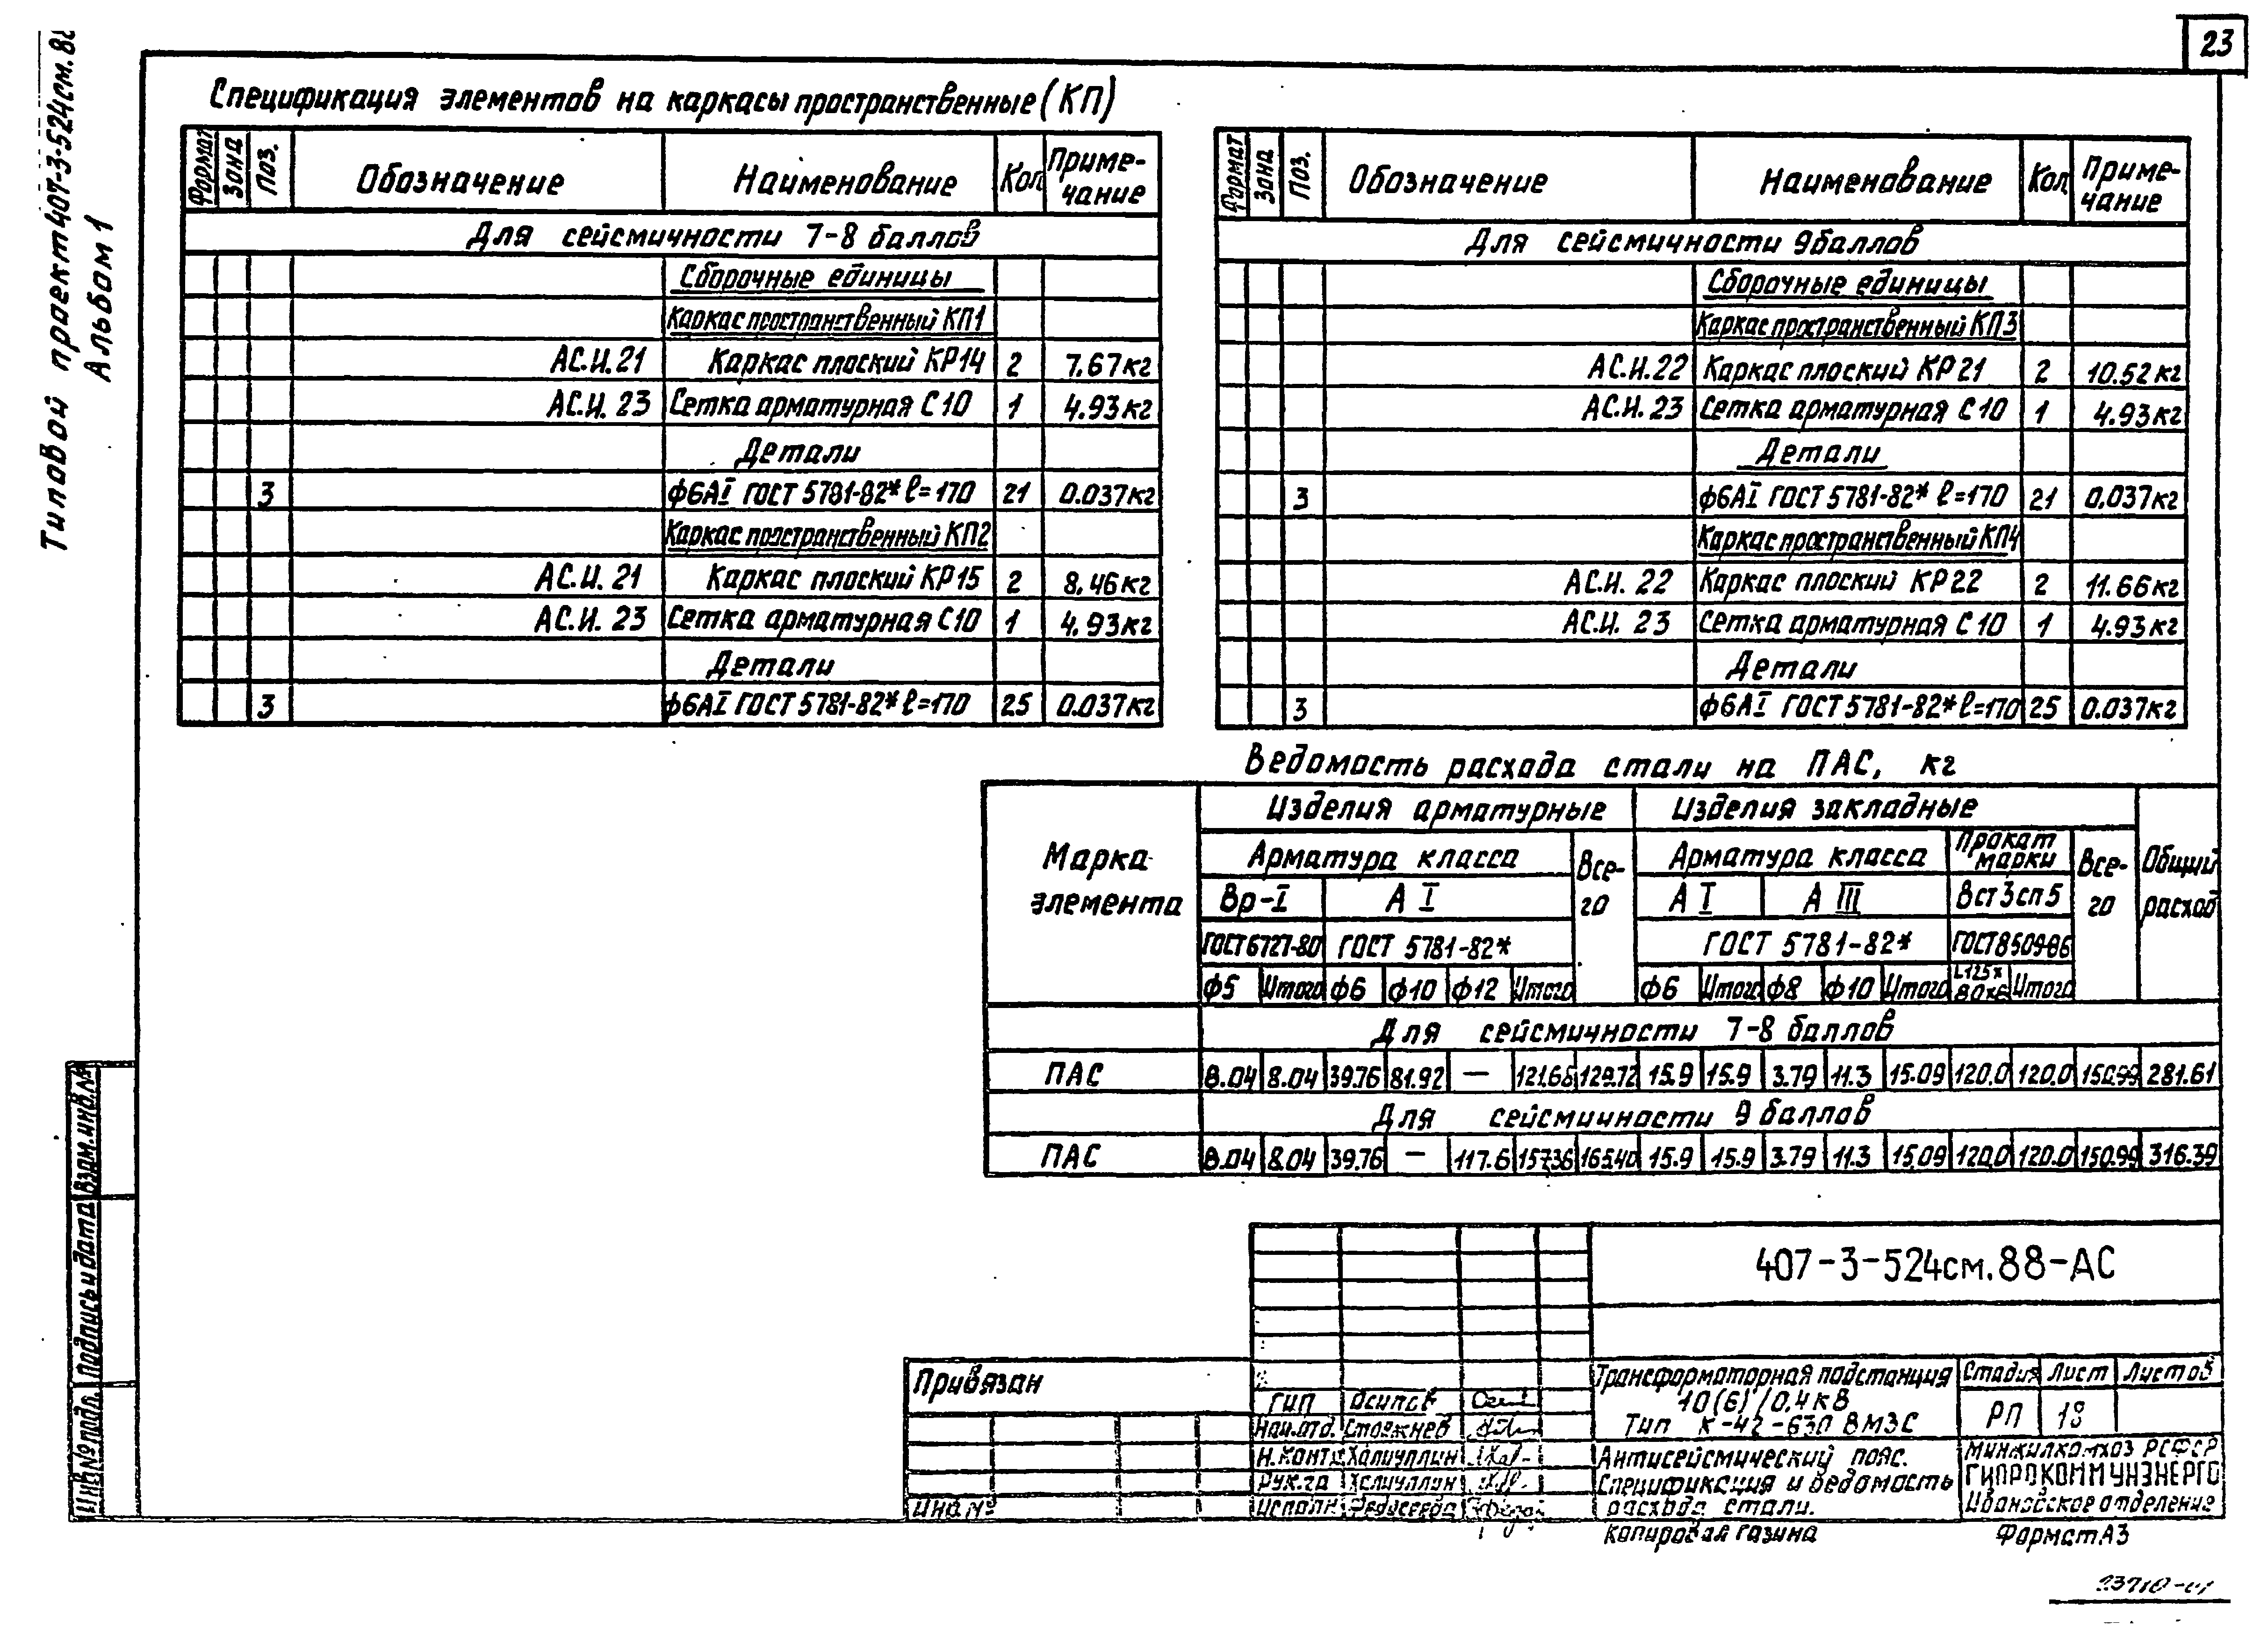 23
Типовой проект 407-3-524см.88
Альбом 1
Спецификация элементов на каркасы пространственные (КП)
Формат Зона Поз. Обозначение Наименование Кол Приме-чание
Для сейсмичности 7-8 баллов
Сборочные единицы
Каркас пространственный КП1
АС.И.21 Каркас плоский КР14 2 7.67кг
АС.И.23 Сетка арматурная С10 1 4.93кг
Детали
3 ф6АI ГОСТ 5781-82* ℓ=170 21 0.037кг
Каркас пространственный КП2
АС.И.21 Каркас плоский КР15 2 8.46кг
АС.И.23 Сетка арматурная С10 1 4.93кг
Детали
3 ф6АI ГОСТ 5781-82* ℓ=170 25 0.037кг
Формат Зона Поз. Обозначение Наименование Кол Приме-чание
Для сейсмичности 9 баллов
Сборочные единицы
Каркас пространственный КП3
АС.И.22 Каркас плоский КР21 2 10.52кг
АС.И.23 Сетка арматурная С10 1 4.93кг
Детали
3 ф6АI ГОСТ 5781-82* ℓ=170 21 0.037кг
Каркас пространственный КП4
АС.И.22 Каркас плоский КР22 2 11.66кг
АС.И.23 Сетка арматурная С10 1 4.93кг
Детали
3 ф6АI ГОСТ 5781-82* ℓ=170 25 0.037кг
Ведомость расхода стали на ПАС, кг
Марка элемента Изделия арматурные Изделия закладные Общий расход
Арматура класса Все-го Арматура класса Прокат марки Все-го
Вр-I А I А I А III Вст3сп5
ГОСТ6727-80 ГОСТ 5781-82* ГОСТ 5781-82* ГОСТ8509-86
ф5 Итого ф6 ф10 ф12 Итого ф6 Итого ф8 ф10 Итого L125х80х8 Итого
Для сейсмичности 7-8 баллов
ПАС 8.04 8.04 39.76 81.92 — 121.68 129.72 15.9 15.9 3.79 11.3 15.09 120.0 120.0 150.99 281.61
Для сейсмичности 9 баллов
ПАС 8.04 8.04 39.76 — 117.6 157.36 165.40 15.9 15.9 3.79 11.3 15.09 120.0 120.0 150.99 316.39
Взам.инв.№
Подпись и дата
Инв № подл.
407-3-524см.88-АС
Привязан
Инв.№
ГИП Осипов
Нач.отд. Стоежнев
Н.контр Халиуллин
Рук.гр Халиуллин
Исполн. Федосеева
Трансформаторная подстанция
10(6)/0,4кВ
Тип К-42-630 ВМ3С
Стадия Лист Листов
РП 18
Антисейсмический пояс.
Спецификация и ведомость
расхода стали.
Минжилкомхоз РСФСР
ГИПРОКОММУНЭНЕРГО
Ивановское отделение
Копировал Газина
Формат А3
23710-01